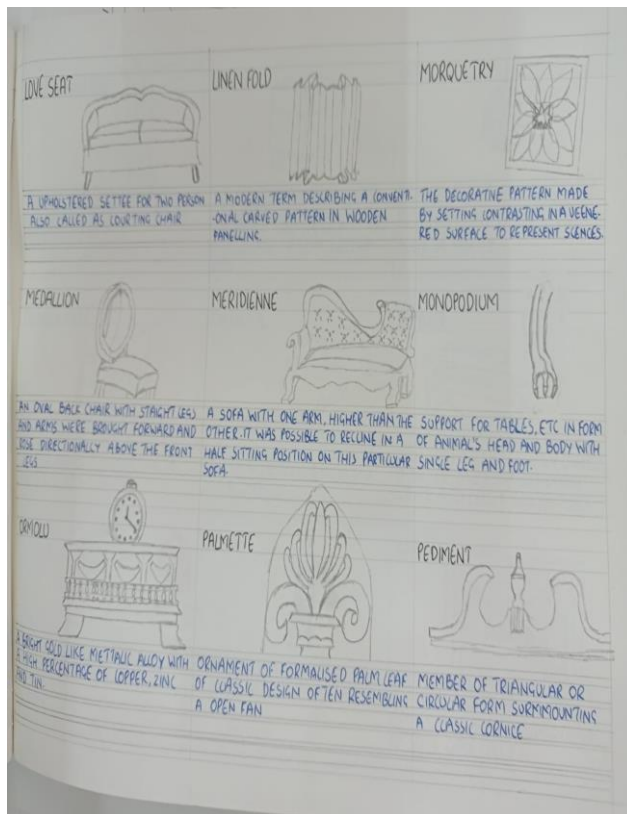 LOVE SEAT
A UPHOLSTERED SETTEE FOR TWO PERSON
ALSO CALLED AS COURTING CHAIR
LINEN FOLD
A MODERN TERM DESCRIBING A CONVENTI-
-ONAL CARVED PATTERN IN WOODEN
PANELLING.
MORQUETRY
THE DECORATIVE PATTERN MADE
BY SETTING CONTRASTING IN A VEENE-
RED SURFACE TO REPRESENT SCENCES.
MEDALLION
AN OVAL BACK CHAIR WITH STAIGHT LEGS
AND ARMS WERE BROUGHT FORWARD AND
ROSE DIRECTIONALLY ABOVE THE FRONT
LEGS.
MERIDIENNE
A SOFA WITH ONE ARM, HIGHER THAN THE
OTHER. IT WAS POSSIBLE TO RECLINE IN A
HALF SITTING POSITION ON THIS PARTICULAR
SOFA.
MONOPODIUM
SUPPORT FOR TABLES, ETC IN FORM
OF ANIMAL'S HEAD AND BODY WITH
SINGLE LEG AND FOOT.
ORMOLU
A BRIGHT GOLD LIKE METTALIC ALLOY WITH
A HIGH PERCENTAGE OF COPPER, ZINC
AND TIN.
PALMETTE
ORNAMENT OF FORMALISED PALM LEAF
OF CLASSIC DESIGN OFTEN RESEMBLING
A OPEN FAN
PEDIMENT
MEMBER OF TRIANGULAR OR
CIRCULAR FORM SURMMOUNTING
A CLASSIC CORNICE